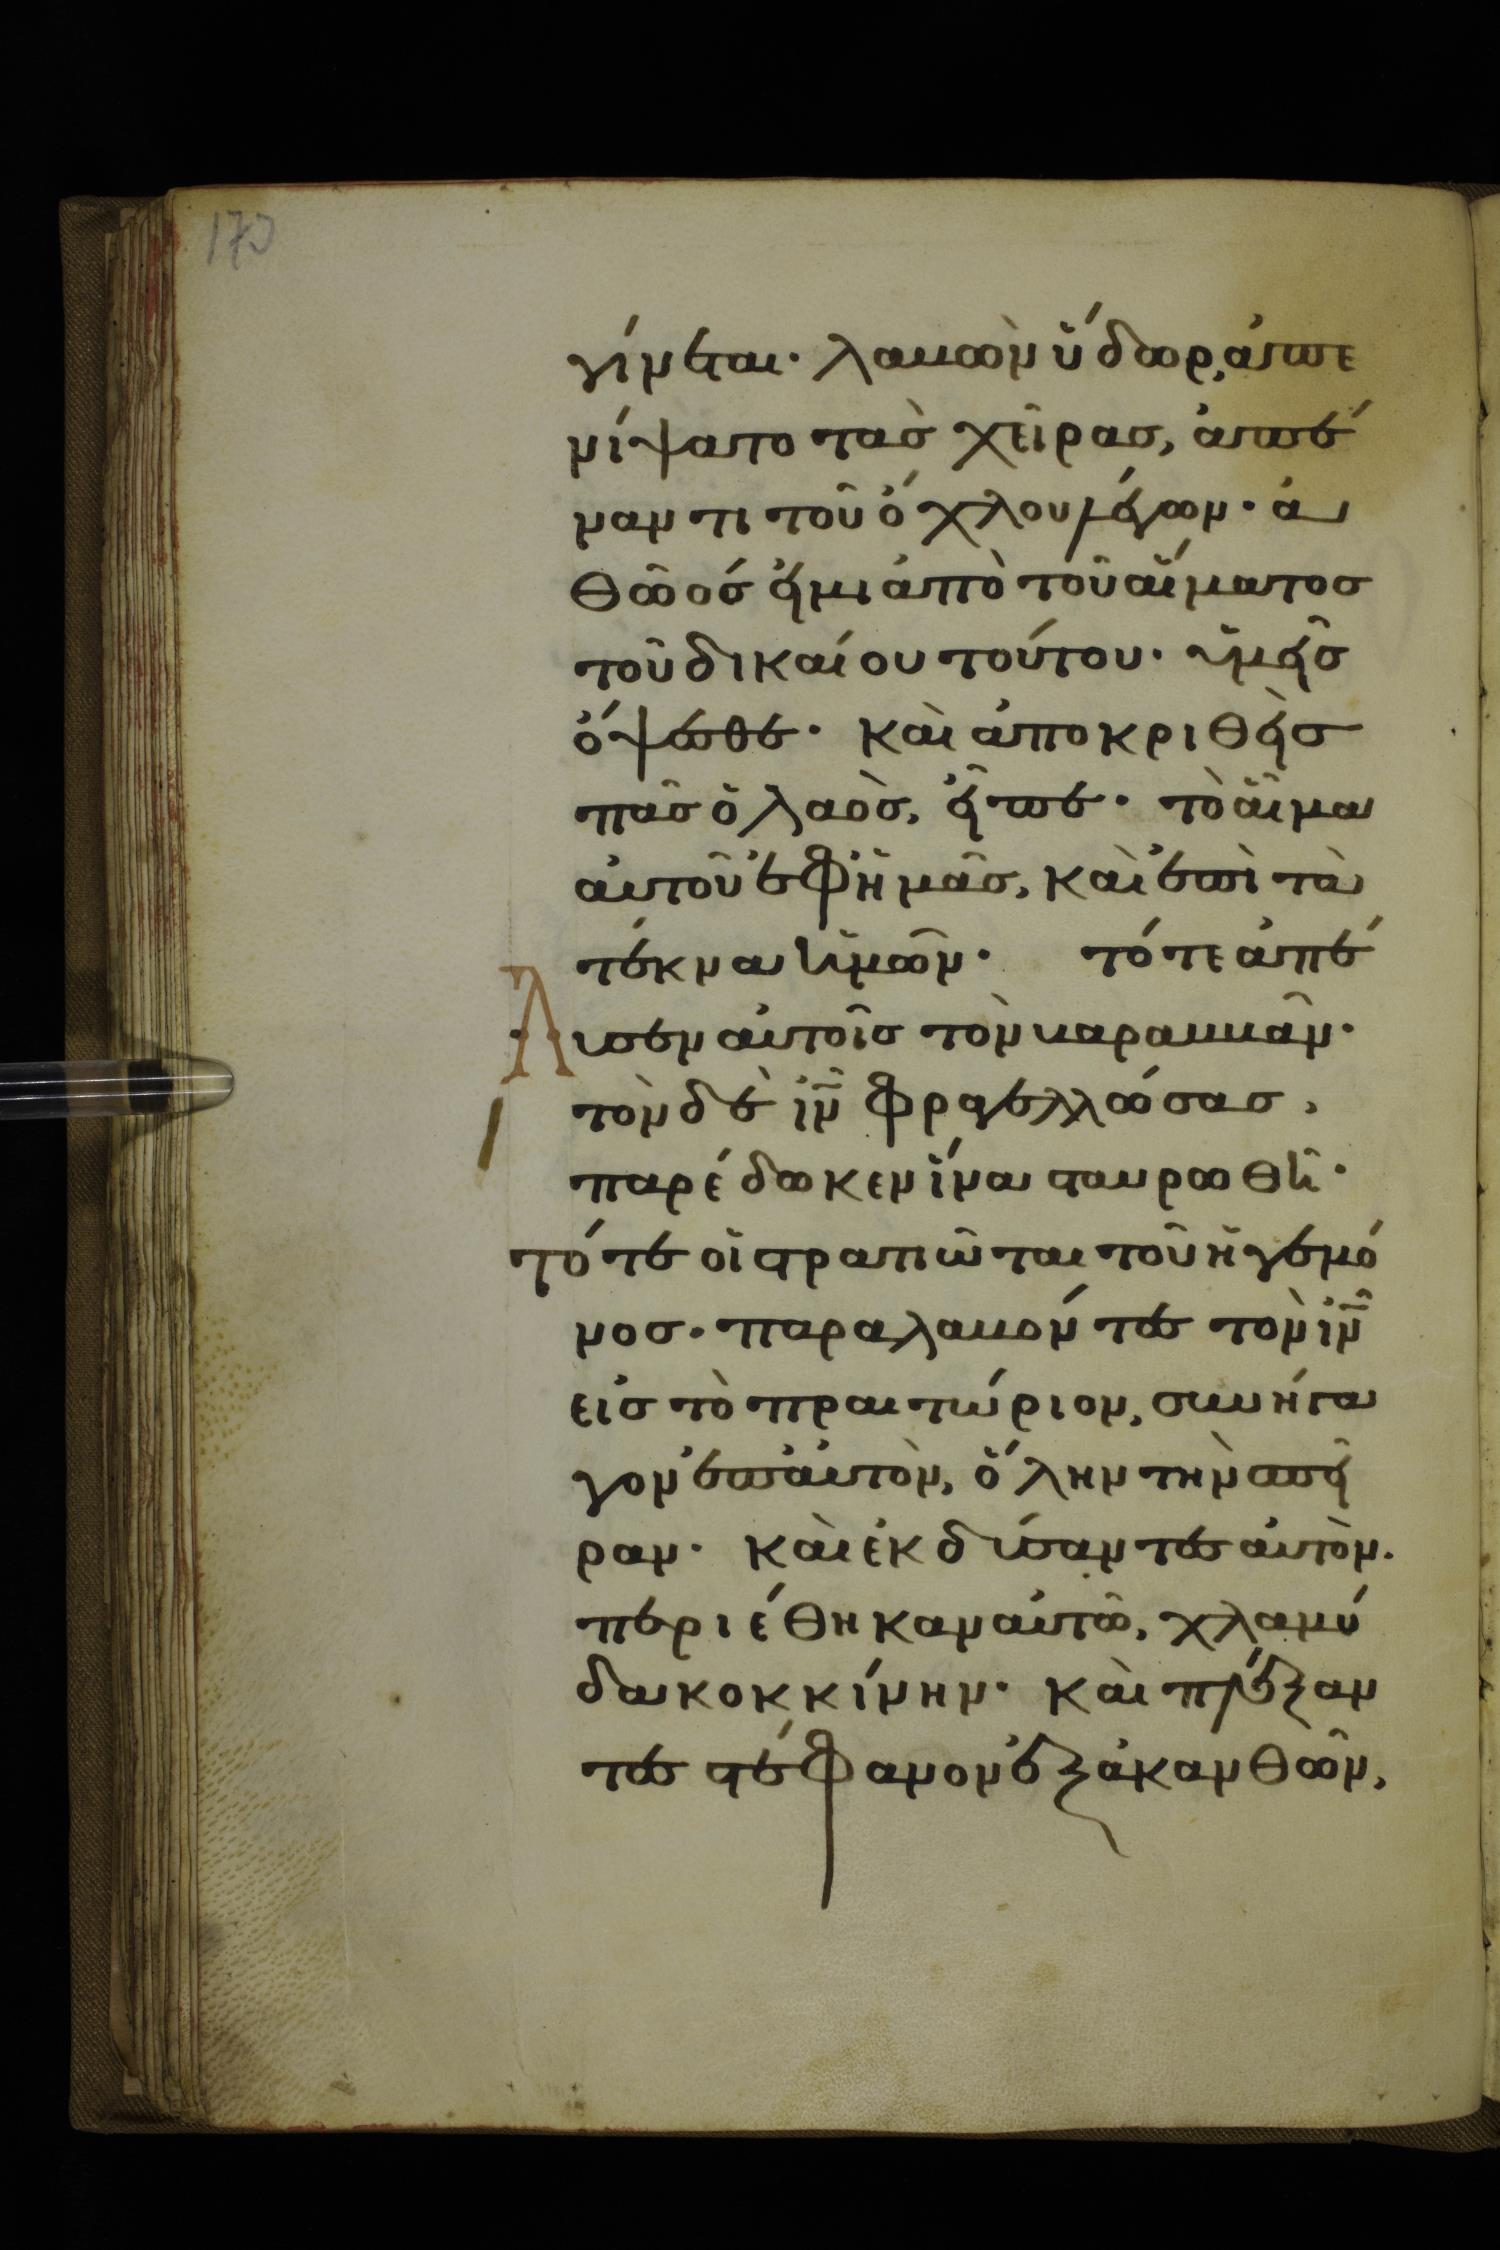 170
γίνεται· λαβὼν ὕδωρ, ἀπε
νίψατο τὰσ χεῖρασ, ἀπέ
ναντι τοῦ ὄχλου λέγων· ἀ
θῶόσ εἰμι ἀπὸ τοῦ αἵματοσ
τοῦ δικαίου τούτου· ὑμεῖσ
ὄψεσθε· καὶ ἀποκριθεὶσ
πᾶσ ὁ λαὸσ, εἶπε· τὸ αἷμα
αὐτοῦ ἐφ ἡμᾶσ, καὶ ἐπὶ τὰ
τέκνα ἡμῶν· τότε ἀπέ
λυσεν αὐτοῖσ τὸν βαραββᾶν·
τὸν δὲ ἰν̅ φραγελλώσασ,
παρέδωκεν ἵνα σταυρωθῆ·
τότε οἱ στρατιῶται τοῦ ἡγεμό
νοσ· παραλαβόντεσ τὸν ἰν̅
εἰσ τὸ πραιτώριον, συνήγα
γον ἐπ αὐτὸν, ὅλην τὴν σπεῖ
ραν· καὶ ἐκδύσαντεσ αὐτὸν.
περιέθηκαν αὐτῶ, χλαμύ
δα κοκκίνην· καὶ πλέξαν
τεσ στέφανον ἐξ ἀκανθῶν,